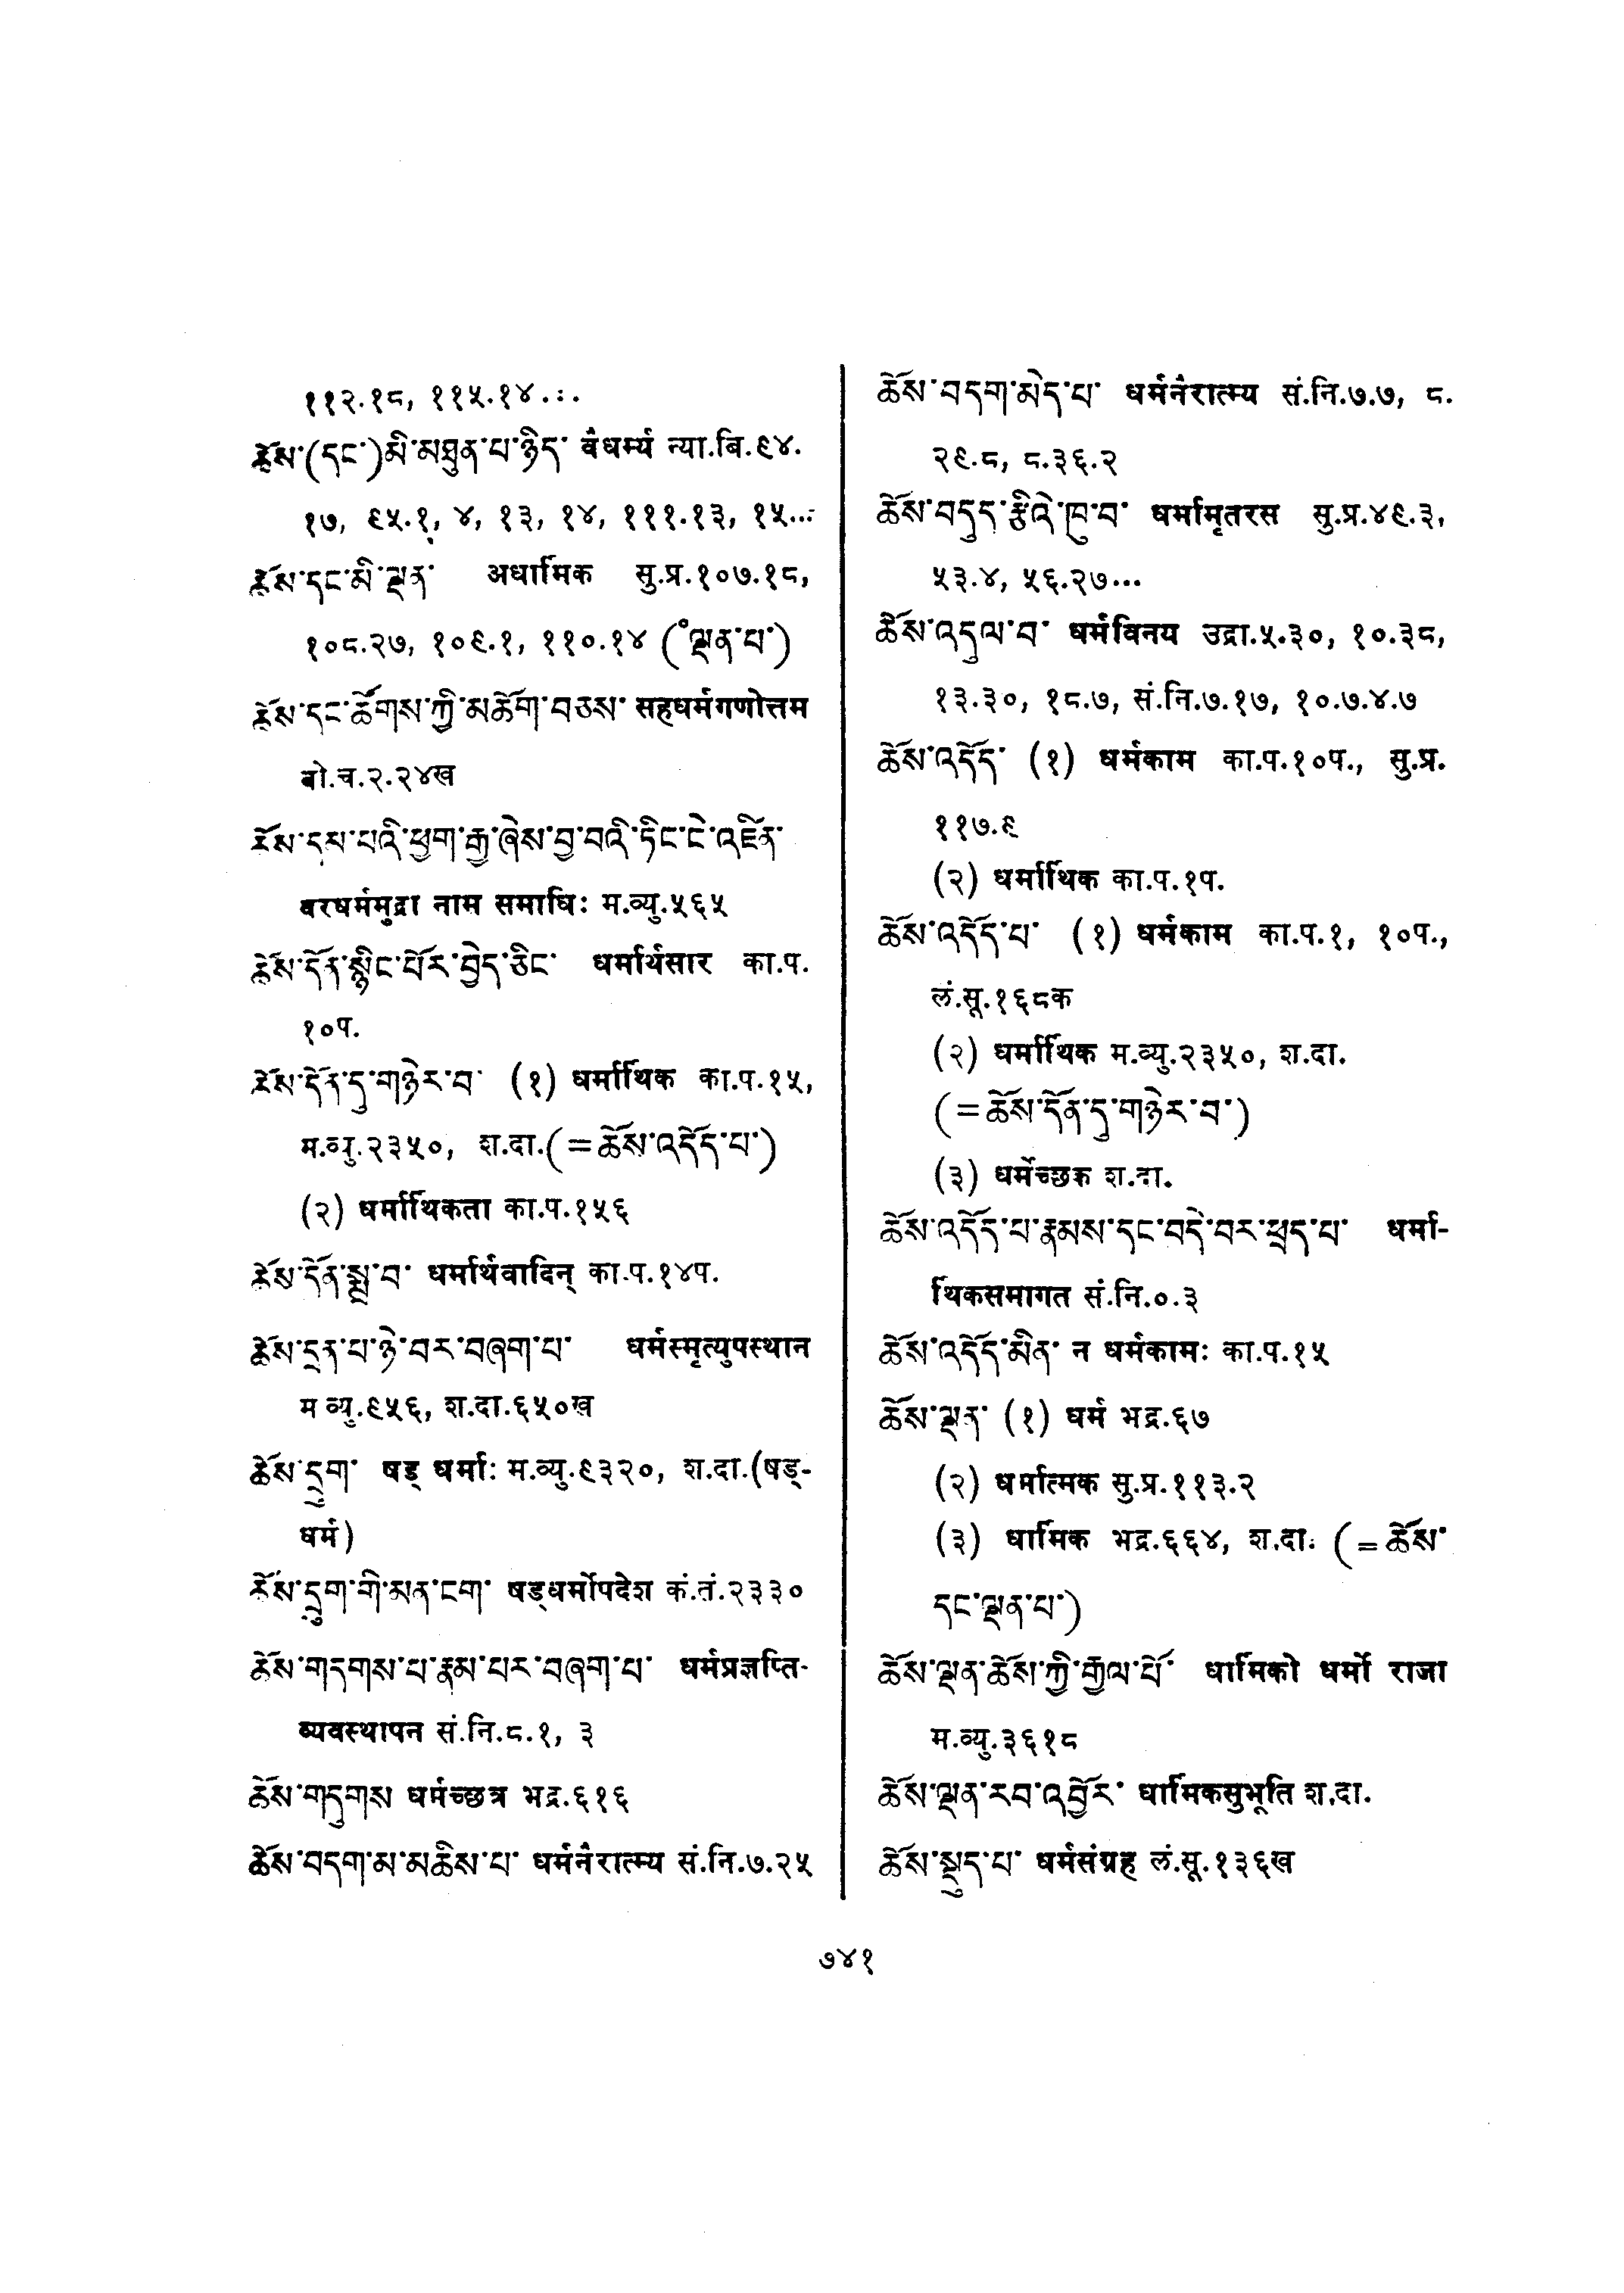 ११२.१८, ११५.१४...
ཆོས་(དང་)མི་མཐུན་པ་ཉིད་ वैधर्म्य न्या.बि.९४.
१७, ९५.१, ४, १३, १४, १११.१३, १५...
ཆོས་དང་མི་ལྡན་ अधार्मिक सु.प्र.१०७.१८,
१०८.२७, १०९.१, ११०.१४ (॰ལྡན་པ་)
ཆོས་དང་ཚོགས་ཀྱི་མཆོག་བཅས་ सहधर्मगणोत्तम
बो.च.२.२४ख
ཆོས་དམ་པའི་ཕྱག་རྒྱ་ཞེས་བྱ་བའི་ཏིང་ངེ་འཛིན་
वरधर्ममुद्रा नाम समाधिः म.व्यु.५६५
ཆོས་དོན་སྙིང་པོར་བྱེད་ཅིང་ धर्मार्थसार का.प.
१०प.
ཆོས་དོན་དུ་གཉེར་བ་ (१) धर्मार्थिक का.प.१५,
म.व्यु.२३५०, श.दा.(=ཆོས་འདོད་པ་)
(२) धर्मार्थिकता का.प.१५६
ཆོས་དོན་སྨྲ་བ་ धर्मार्थवादिन् का.प.१४प.
ཆོས་དྲན་པ་ཉེ་བར་བཞག་པ་ धर्मस्मृत्युपस्थान
म व्यु.९५६, श.दा.६५०ख
ཆོས་དྲུག་ षड् धर्माः म.व्यु.९३२०, श.दा.(षड्-
धर्म)
ཆོས་དྲུག་གི་མན་ངག་ षड्धर्मोपदेश कं.तं.२३३०
ཆོས་གདགས་པ་རྣམ་པར་བཞག་པ་ धर्मप्रज्ञप्ति-
व्यवस्थापन सं.नि.८.१, ३
ཆོས་གདུགས धर्मच्छत्र भद्र.६१६
ཆོས་བདག་མ་མཆིས་པ་ धर्मनैरात्म्य सं.नि.७.२५
ཆོས་བདག་མེད་པ་ धर्मनैरात्म्य सं.नि.७.७, ८.
२९.८, ८.३६.२
ཆོས་བདུད་རྩིའི་ཁུ་བ་ धर्मामृतरस सु.प्र.४९.३,
५३.४, ५६.२७...
ཆོས་འདུལ་བ་ धर्मविनय उद्रा.५.३०, १०.३८,
१३.३०, १८.७, सं.नि.७.१७, १०.७.४.७
ཆོས་འདོད་ (१) धर्मकाम का.प.१०प., सु.प्र.
११७.९
(२) धर्मार्थिक का.प.१प.
ཆོས་འདོད་པ་ (१) धर्मकाम का.प.१, १०प.,
लं.सू.१६८क
(२) धर्मार्थिक म.व्यु.२३५०, श.दा.
(=ཆོས་དོན་དུ་གཉེར་བ་)
(३) धर्मेच्छक श.दा.
ཆོས་འདོད་པ་རྣམས་དང་བདེ་བར་ཕྲད་པ་ धर्मा-
र्थिकसमागत सं.नि.०.३
ཆོས་འདོད་མིན་ न धर्मकामः का.प.१५
ཆོས་ལྡན་ (१) धर्म भद्र.६७
(२) धर्मात्मक सु.प्र.११३.२
(३) धार्मिक भद्र.६६४, श.दा. (=ཆོས་
དང་ལྡན་པ་)
ཆོས་ལྡན་ཆོས་ཀྱི་རྒྱལ་པོ་ धार्मिको धर्मो राजा
म.व्यु.३६१८
ཆོས་ལྡན་རབ་འབྱོར་ धार्मिकसुभूति श.दा.
ཆོས་སྡུད་པ་ धर्मसंग्रह लं.सू.१३६ख
७४१